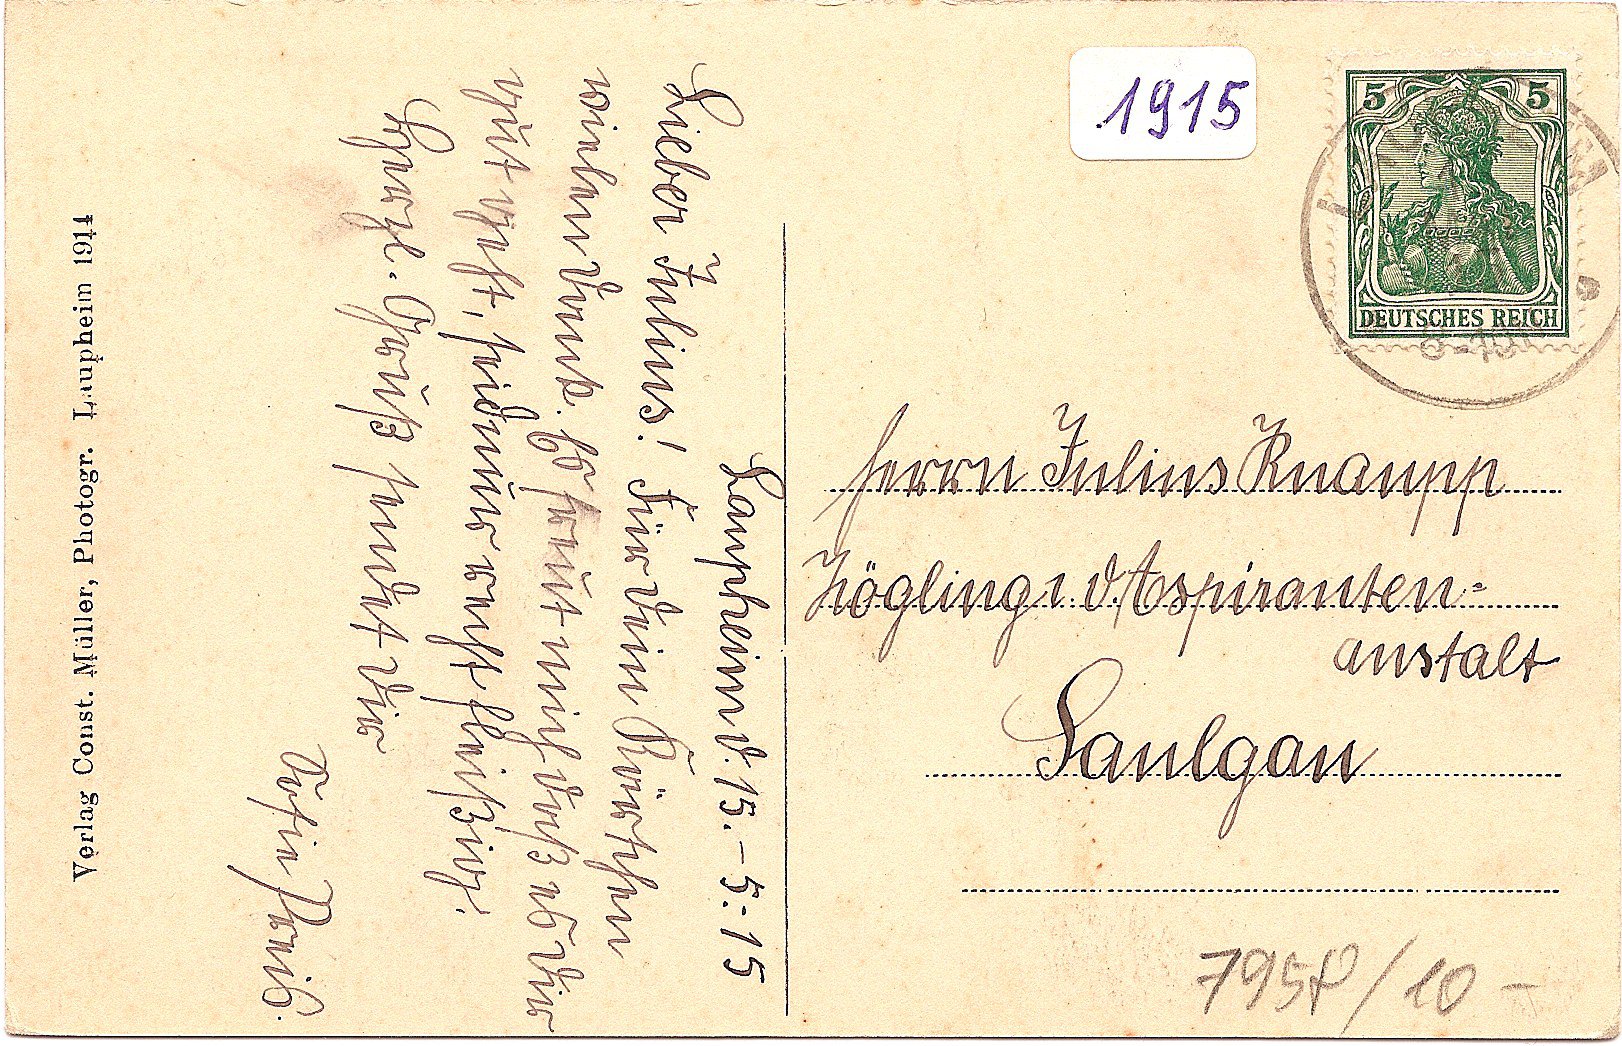 Laupheim d. 15.-5.-15
Lieber Julius! Für dein Kärtchen
vielen Dank. Es freut mich daß es dir
gut geht, sei nur recht fleißig.
Herzl. Gruß sendet dir
1915
5 5
DEUTSCHES REICH
Herrn Julius Knaupp
Zögling i. d. Aspiranten-
anstalt
Saulgau
7958/10 -
Verlag Const. Müller, Photogr. Laupheim 1914